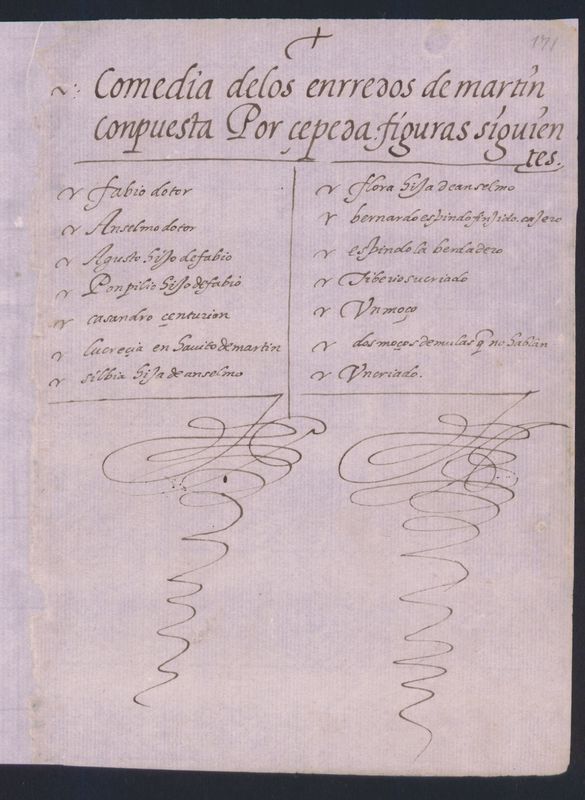 171
Comedia delos enrredos de martin
conpuesta Por çepeda. figuras siguien
tes.
fabio dotor
Anselmo dotor
Agusto hijo de fabio
Ponpilio hijo de fabio
casandro çenturion
lucreçia en havito de martin
silbia hija de anselmo
flora hija de anselmo
bernardo espindo finjido. cajero
espindola berdadero
Tiberio su criado
Vn moço
dos moços de mulas q̃ no hablan
Vn criado.